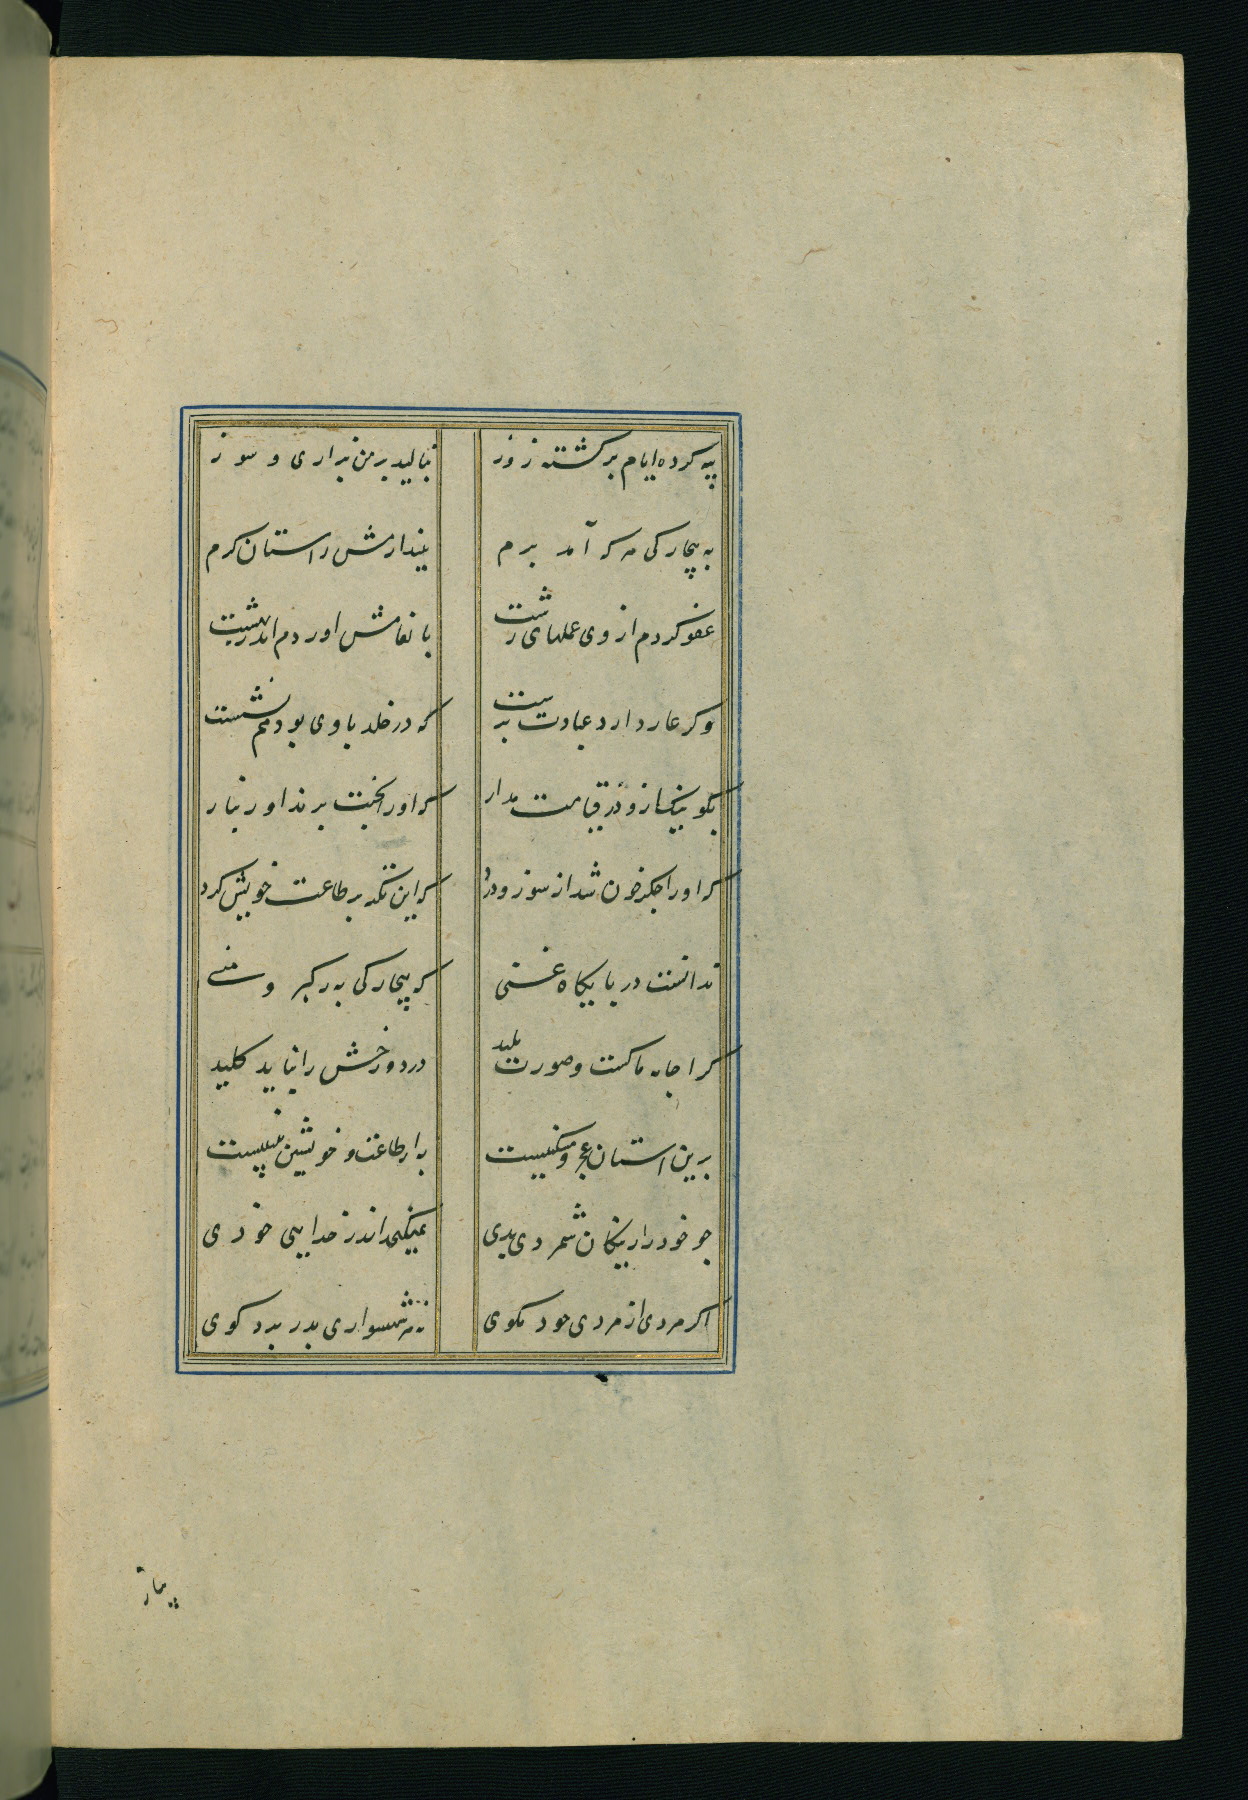 تبه کرده ایام برگشته روز بنالید بر من بزاری و سوز
به بیچارگی هر که آمد برم نیندازمش ز استان کرم
عفو کردم از وی عملهای زشت بانعامش اوردم اندر بهشت
وگر عار دارد عبادت پرست که در خلد با وی بود هم نشست
بگو ننگ ازو در قیامت مدار که اورا بجنت برند او بنار
که اورا جگر خون شد از سوز و درد گر این تکیه بر طاعت خویش کرد
ندانست در بارگاه غنی که بیچارگی به ز کبر و منی
کرا جامه پاکست و صورت پلید در دوزخش را نباید کلید
برین استان عجز و مسکینیت به از طاعت و خویشتن بینیت
چو خود را ز نیکان شمردی بدی نمیگنجد اندر خدایی خودی
اگر مردی از مردی خود مگوی نه هر شهسواری بدر برد گوی
پیاز